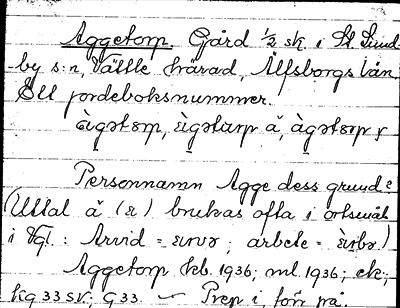 Aggetorp. Gård 1/2 sk. i St. Lund-
by s:n, Vättle härad, Älfsborgs län.
Ett jordeboksnummer.
ὲigətɛrp, ὲigətarp ǎ, àgətɛrp
Personnamn Agge dess grund?
(Uttal ǎ (ε) brukas ofta i ortsmål
i Vgl.: Arvid = ; arbete = )
Aggetorp kb. 1936; ml. 1936; ek;
hg 33 sv; G 33. – Prep i, fön på.